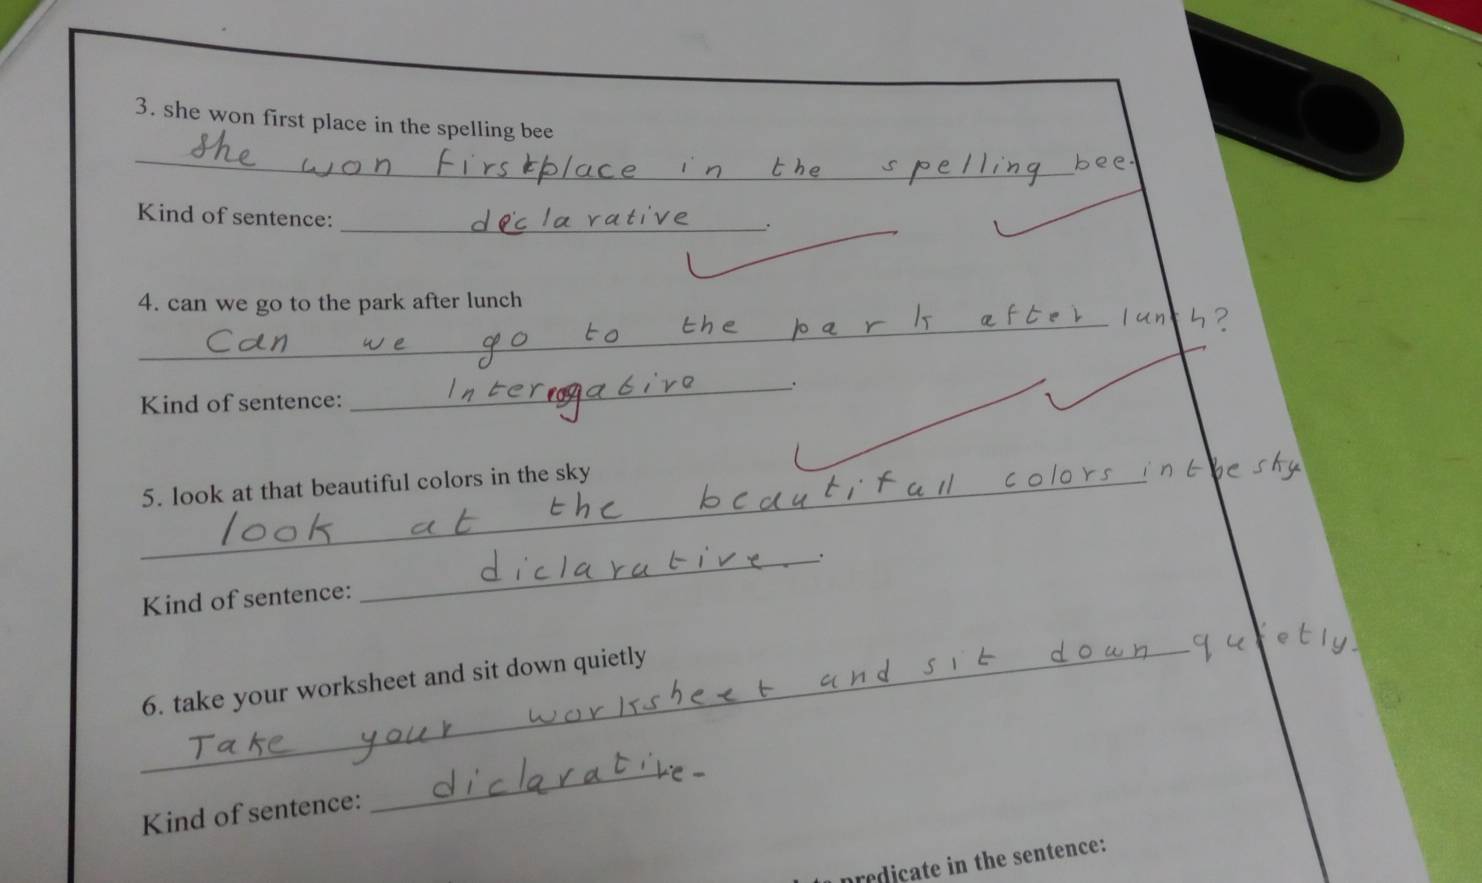 3. she won first place in the spelling bee
She won firstplace in the spelling bee.
Kind of sentence: declarative.
4. can we go to the park after lunch
Can we go to the park after lunch?
Kind of sentence: Interrogative.
5. look at that beautiful colors in the sky
look at the beautifull colors in the sky
Kind of sentence: diclarative.
6. take your worksheet and sit down quietly
Take your worksheet and sit down quietly.
Kind of sentence: diclarative.
predicate in the sentence: